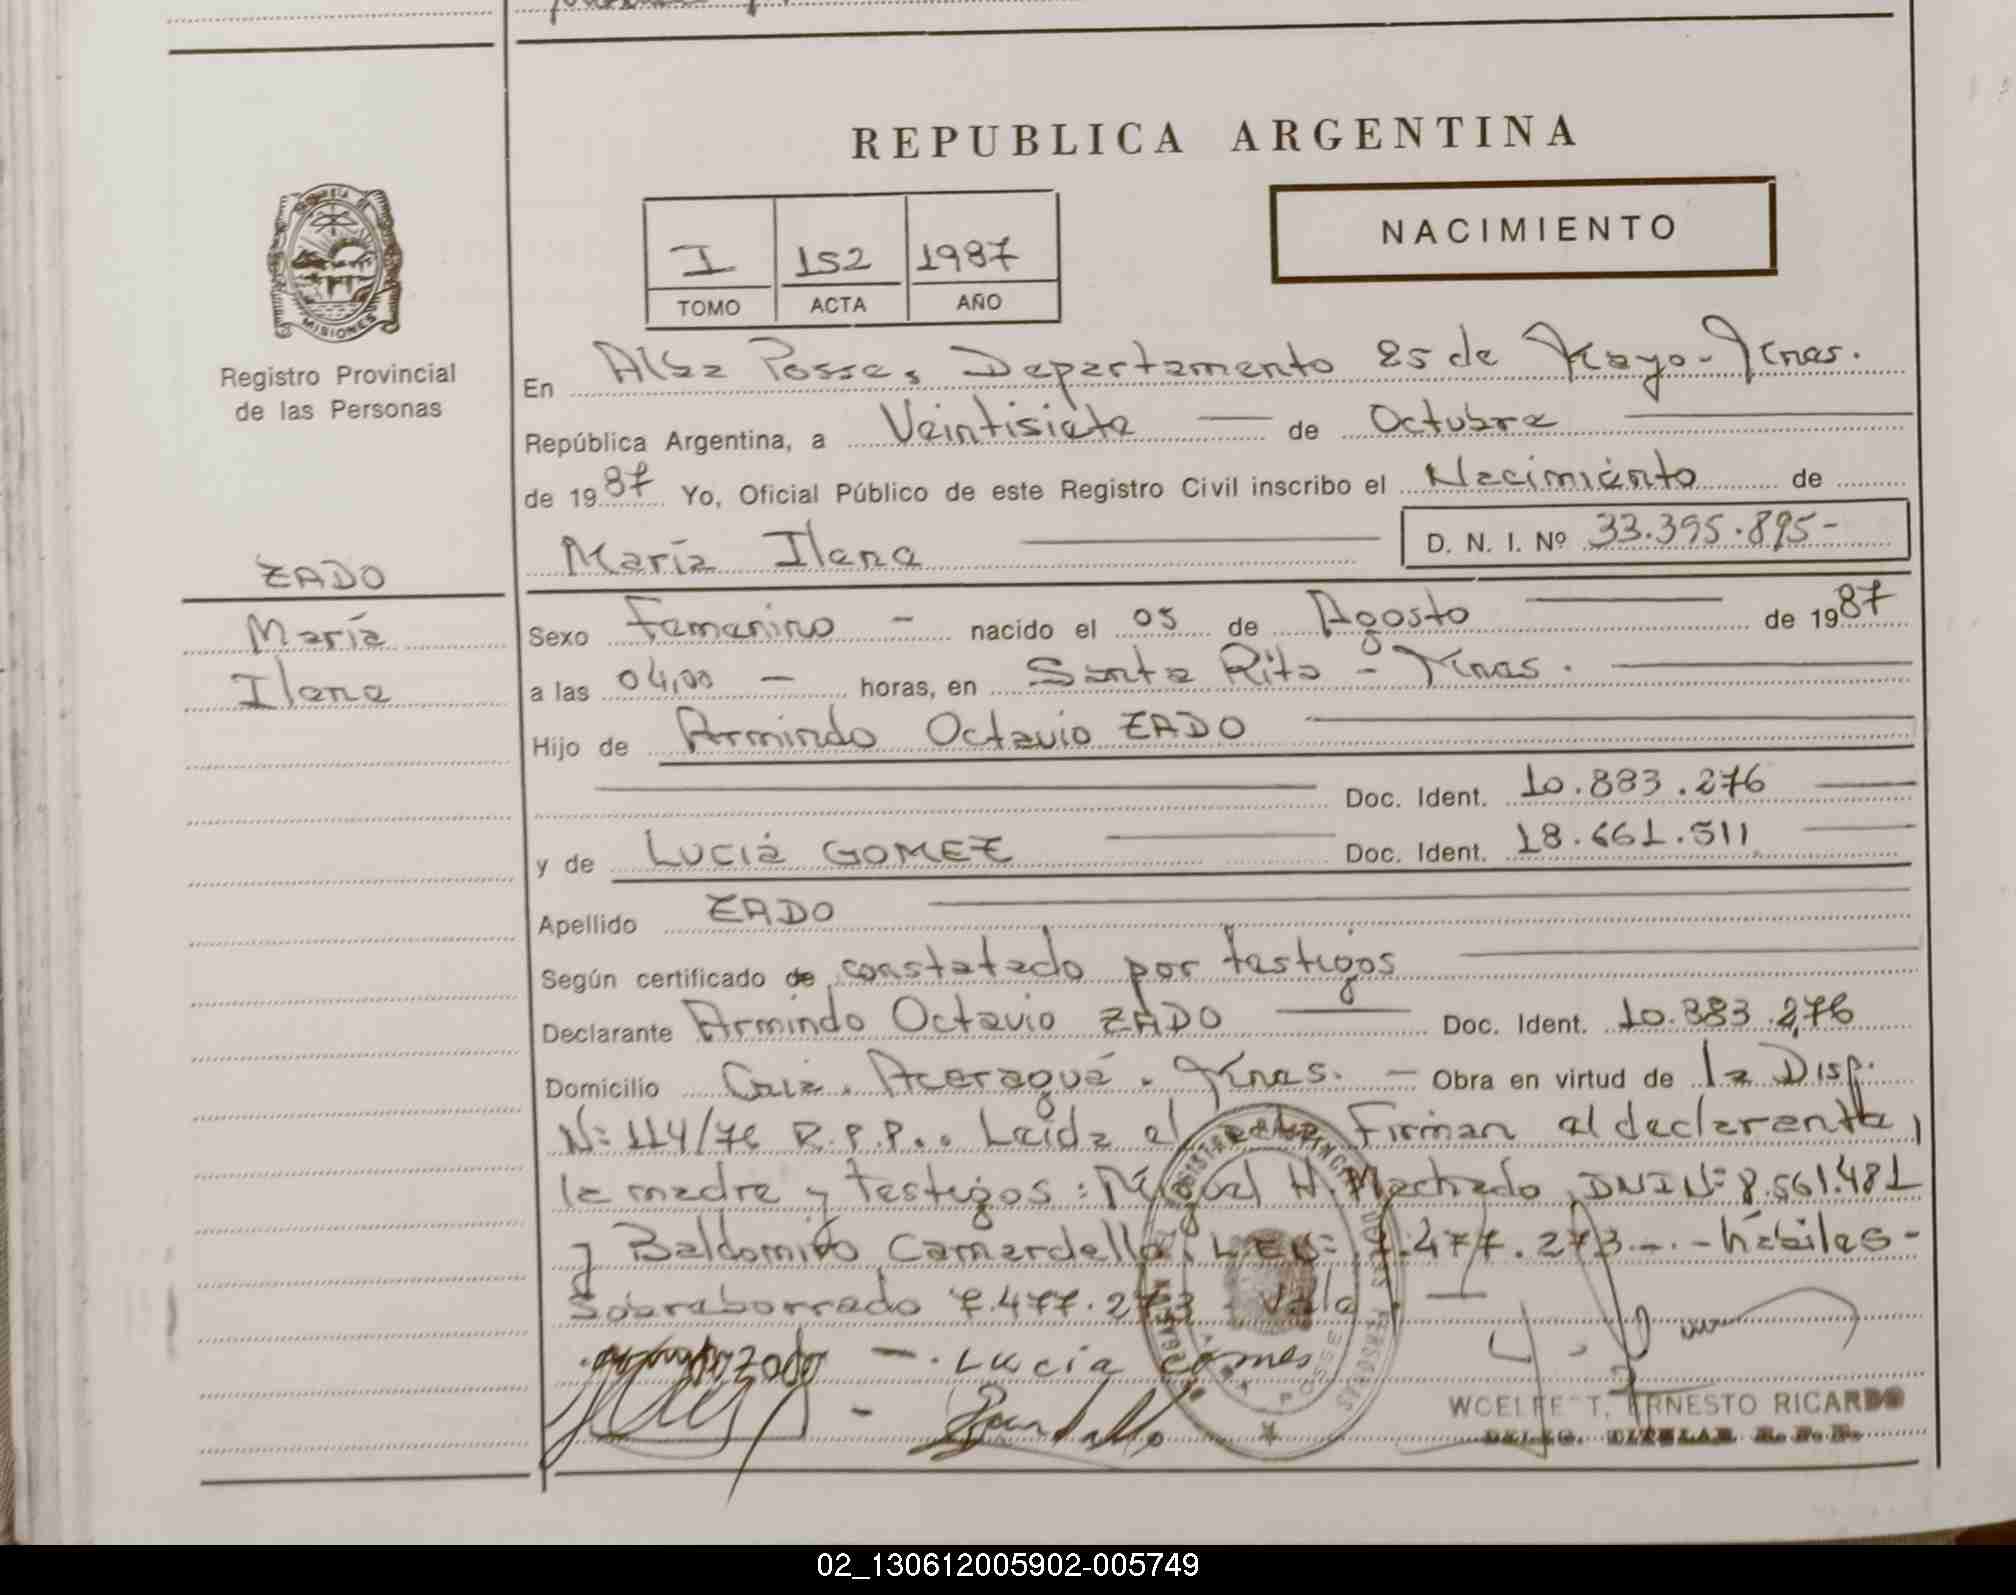 REPUBLICA ARGENTINA
NACIMIENTO
I 152 1987
TOMO ACTA AÑO
MISIONES
Registro Provincial
de las Personas
En Alba Posse, Departamento 25 de Mayo - Mnes.
República Argentina, a Veintisiete de Octubre
de 1987 Yo, Oficial Público de este Registro Civil inscribo el Nacimiento de
María Ilena D. N. I. Nº 33.395.895-
ZADO
María
Ilena
Sexo Femenino - nacido el 05 de Agosto de 1987
a las 04,00 - horas, en Santa Rita - Mnes.
Hijo de Armindo Octavio ZADO
Doc. Ident. 10.883.276
y de Lucía GOMEZ Doc. Ident. 18.661.511
Apellido ZADO
Según certificado de constatado por testigos
Declarante Armindo Octavio ZADO Doc. Ident. 10.883.276
Domicilio Cnia. Acaraguá. Mnes. - Obra en virtud de la Disp.
Nº 114/76 R.P.P.. Leída el acta, Firman el declarante,
la madre y testigos: Miguel H. Machado, DNI Nº 8.561.481
y Baldomiro Camardella, LE Nº 7.477.273 -.- hábiles -
Sobreborrado 7.477.273 - Vale. -
Zado -. Lucia Gomes
WCELFE T. ERNESTO RICARDO
DELEG. TITULAR R. P. P.
02_130612005902-005749